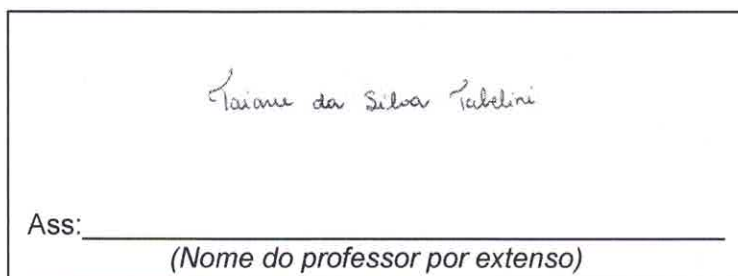 Taiane da Silva Tabelini
Ass:
(Nome do professor por extenso)